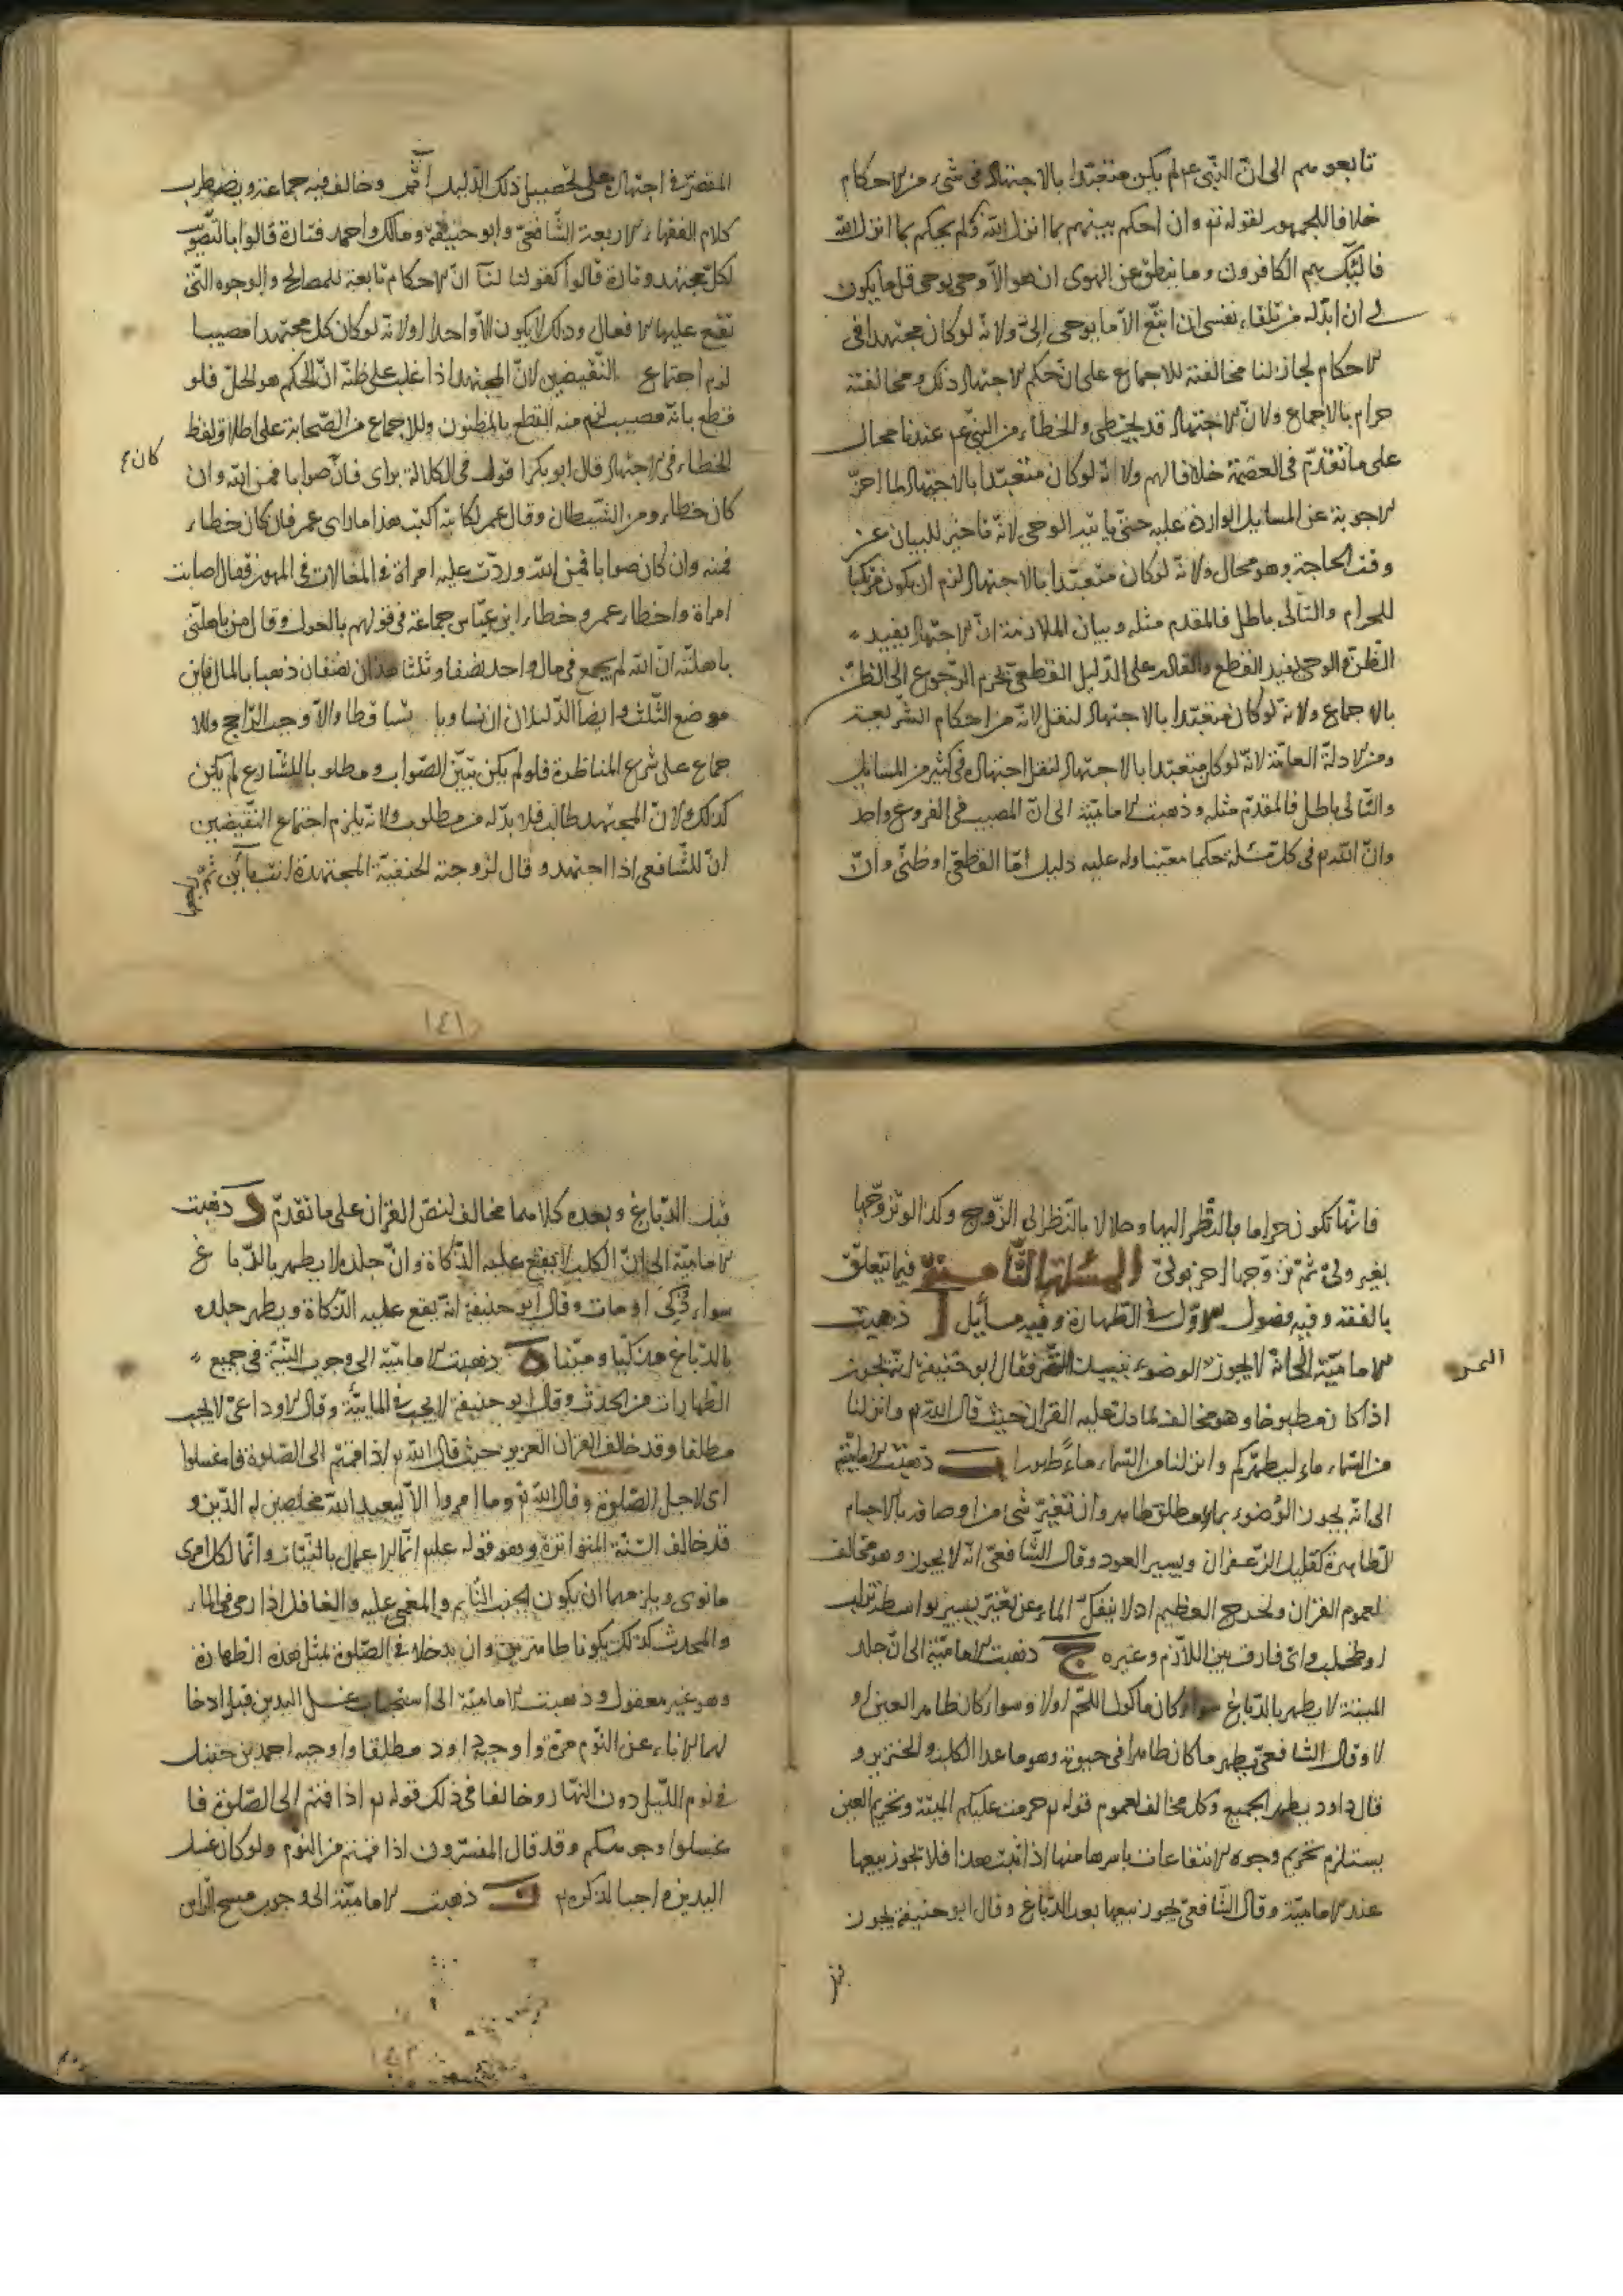 تابعوهم الى انّ النّبى عم لم يكن متعبّدا بالاجتهاد فى شىء من الاحكام
خلافا للجمهور لقوله تع وان احكم بينهم بما انزل الله ومن لم يحكم بما انزل الله
فاولئك هم الكافرون وما ينطق عن الهوى ان هو الاّ وحى يوحى قل ما يكون
لى ان ابدّله من تلقاء نفسى ان اتبّع الاّ ما يوحى إلىّ ولانّه لو كان مجتهدا فى
الاحكام لجاز لنا مخالفته للاجماع على انّ حكم الاجتهاد ذلك ومخالفته
حرام بالاجماع ولانّ الاجتهاد قد يخطى والخطاء من النبى عم عندنا محال
على ما تقدّم فى العصمة خلافا لهم ولانّه لو كان متعبّدا بالاجتهاد لما اخّر
الاجوبة عن المسايل الواردة عليه حتّى ياتيه الوحى لانّه تاخير للبيان عن
وقت الحاجة وهو محال ولانّه لو كان متعبّدا بالاجتهاد لزم ان يكون مرتكبا
للحرام والتّالى باطل فالمقدم مثله وبيان الملازمة انّ الاجتهاد يفيد
الظنّ والوحى يفيد القطع والقادر على الدّليل القطعىّ يحرم الرّجوع الى الظنّ
بالاجماع ولانّه لو كان متعبّدا بالاجتهاد لنقل لانّه من احكام الشّريعة
ومن الادلّة العامّة لانّه لو كان متعبّدا بالاجتهاد لنقل اجتهاده فى كثير من المسايل
والتّالى باطل فالمقدّم مثله وذهبت الاماميّة الى انّ المصيب فى الفروع واحد
وانّ الله تم فى كلّ مسئلة حكما معيّنا وله عليه دليل امّا القطعىّ او ظنّى وانّ
المقصّر فى اجتهاده على تحصيل ذلك الدّليل آثم وخالف فيه جماعة ويضطرب
كلام الفقهاء الاربعة الشّافعىّ وابو حنيفة ومالك واحمد فتارة قالوا بالتّصويب
لكلّ مجتهد وتارة قالوا كقولنا لنا انّ الاحكام تابعة للمصالح والوجوه التّى
تقع عليها الافعال وذلك لا يكون الاّ واحدا ولانّه لو كان كلّ مجتهد مصيبا
لزم اجتماع النّقيضين لانّ المجتهد اذا غلب على ظنّه انّ الحكم هو الحلّ فلو
قطع بانّه مصيب لزم منه القطع بالمظنون وللاجماع من الصّحابة على اطلاق لفظ
الخطاء فى الاجتهاد قال ابو بكر اقول فى الكلالة براى فان صوابا فمن الله وان
كان ع
كان خطاء ومن الشّيطان وقال عمر لكاتبه اكتب هذا ما راى عمر فان كان خطاء
فمنه وان كان صوابا فمن الله وردّت عليه امراة فى المغالات فى المهور فقال اصابت
امراة واخطاء عمر وخطاء ابن عبّاس جماعة فى قولهم بالعول وقال من باهلنى
باهلته انّ الله لم يجمع فى مال واحد نصفا وثلثا هذان نصفان ذهبا بالمال فاين
موضع الثّلث وايضا الدّليلان ان تساويا تساقطا والاّ وجب الرّاجح وللا
جماع على شرع المناظرة فلو لم يكن تبيّن الصّواب مطلوبا للشّارع لم يكن
كذلك ولانّ المجتهد طالب فلا بدّ له من مطلوب ولانّه يلزم اجتماع النّقيضين
انّ للشّافعى اذا اجتهد وقال لزوجته الحنفيّة المجتهدة انت باين ثمّ راجعها
١٤١
فانّها تكون حراما بالنّظر اليها وحلالا بالنّظر الى الزّوج وكذا لو تزوّجها
بغير ولىّ ثمّ تزوّجها اخر بولىّ المسئلة الثّامنة فيما يتعلّق
بالفقه وفيه فصول الاوّل فى الطّهارة وفيه مسايل ا ذهبت
الاماميّة الى انّه لا يجوز الوضوء بنبيذ التّمر فقال ابو حنيفة انّه يجوز
التمر
اذا كان مطبوخا وهو مخالف لما دلّ عليه القران حيث قال الله تم وانزلنا
من السّماء ماء ليطهّركم وانزلنا من السّماء ماءً طهورا ب ذهبت الاماميّة
الى انّه يجوز الوُضوء بماء مطلق طاهر وان تغيّر شىء من اوصافه بالاجسام
الطّاهرة كقليل الزّعفران ويسير العود وقال الشّافعىّ انّه لا يجوز وهو مخالف
لعموم القران ولحرج العظيم اذ لا ينفكّ الماء عن تغيّر يسير بواسطة تراب
او طحلب واىّ فارق بين اللاّزم وغيره ج ذهبت الاماميّة الى انّ جلد
الميتة لا يطهر بالدّباغ سواء كان ماكول اللّحم اولا وسواء كان طاهر العين او
لا وقال الشّافعىّ يطهر ما كان طاهرا فى حيوته وهو ما عدا الكلب والخنزير و
قال داود يطهر الجميع وكلّ مخالف لعموم قوله تم حرّمت عليكم الميتة وتحريم العين
يستلزم تحريم وجوه الانتفاعات باسرها منها اذا ثبت هذا فلا يجوز بيعها
عند الاماميّة وقال الشّافعىّ يجوز بيعها بعد الدّباغ وقال ابو حنيفة يجوز
قبل الدّباغ وبعده وكلاهما مخالف لنصّ القران على ما تقدّم د ذهبت
الاماميّة الى انّ الكلب لا يقع عليه الذّكاة وانّ جلده لا يطهر بالدّباغ
سواء ذُكّى او مات وقال ابو حنيفة انّه يقع عليه الذّكاة ويطهر جلده
بالدّباغ مذكّيا وميّتا ه ذهبت الاماميّة الى وجوب النّيّة فى جميع
الطّهارات من الحدث وقال ابو حنيفة لا يجب فى المائيّة وقال الاوزاعىّ لا يجب
مطلقا وقد خالف القران العزيز حيث قال الله تم اذا قمتم الى الصّلوة فاغسلوا
اى لاجل الصّلوة وقال الله تم وما امروا الاّ ليعبدوا الله مخلصين له الدّين و
قد خالف السّنة المتواترة وهو قوله عليه انّما الاعمال بالنّيّات وانّما لكل امرى
ما نوى ويلزمهما ان يكون الجنب النّايم والمغمى عليه والغافل اذا رمى فى الماء
والمحدث كذلك يكونا طاهرين وان يدخلا فى الصّلوة بمثل هذه الطّهارة
وهو غير معقول و ذهبت الاماميّة الى استحباب غسل اليدين قبل ادخا
لهما الاناء من النّوم مرّة واوجبه داود مطلقا واوجبه احمد بن حنبل
فى نوم اللّيل دون النّهار وخالفا فى ذلك قوله تم اذا قمتم الى الصّلوة فا
غسلوا وجوهكم وقد قال المفسّرون اذا قمتم من النّوم ولو كان غسل
اليدين واجبا لذكره ز ذهبت الاماميّة الى وجوب مسح الرّاس